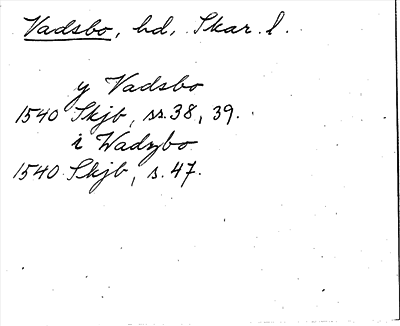 Vadsbo, hd, Skar. l.
y Vadsbo
1540 Skjb, ss. 38, 39.
i Wadzbo
1540 Skjb, s. 47.